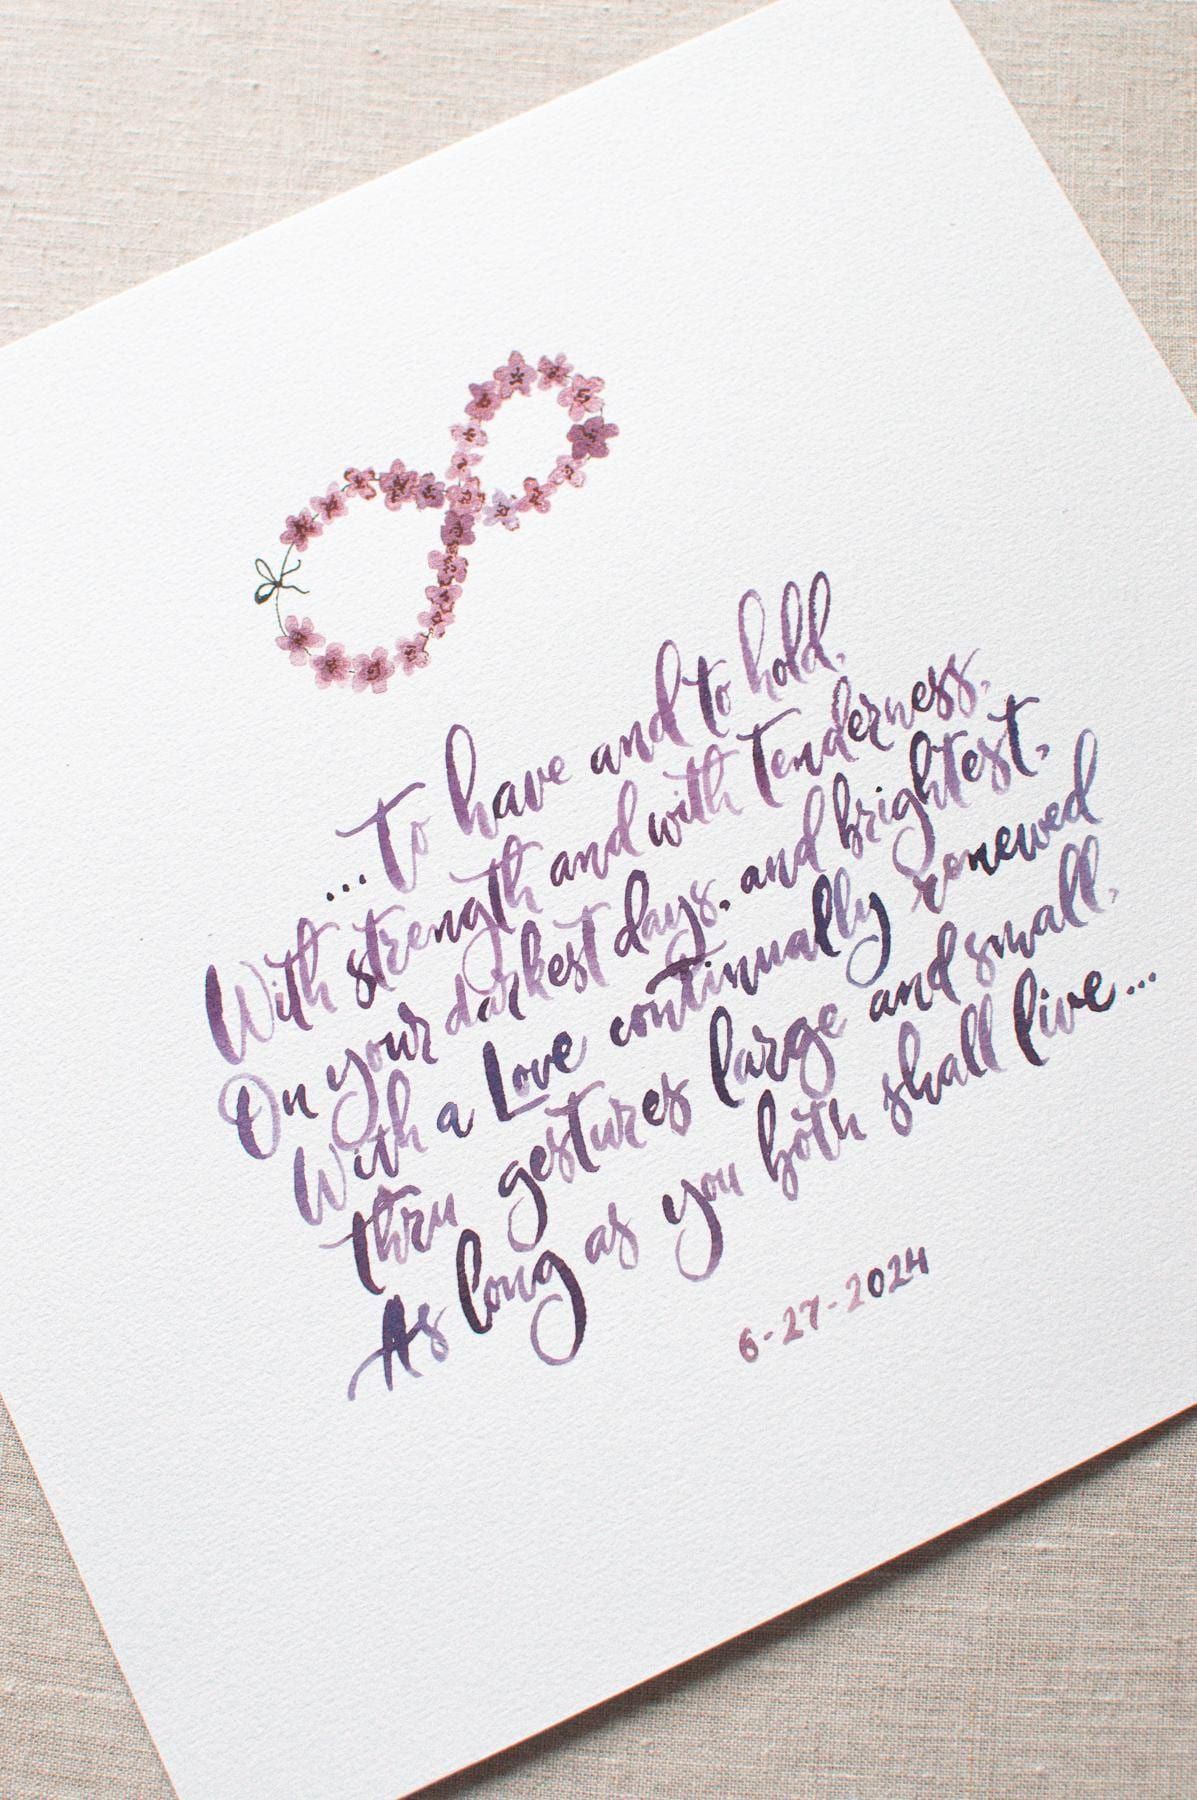 ...To have and to hold,
With strength and with Tenderness,
On your darkest days, and brightest,
With a Love continually renewed
thru gestures large and small,
As long as you both shall live...
6-27-2024